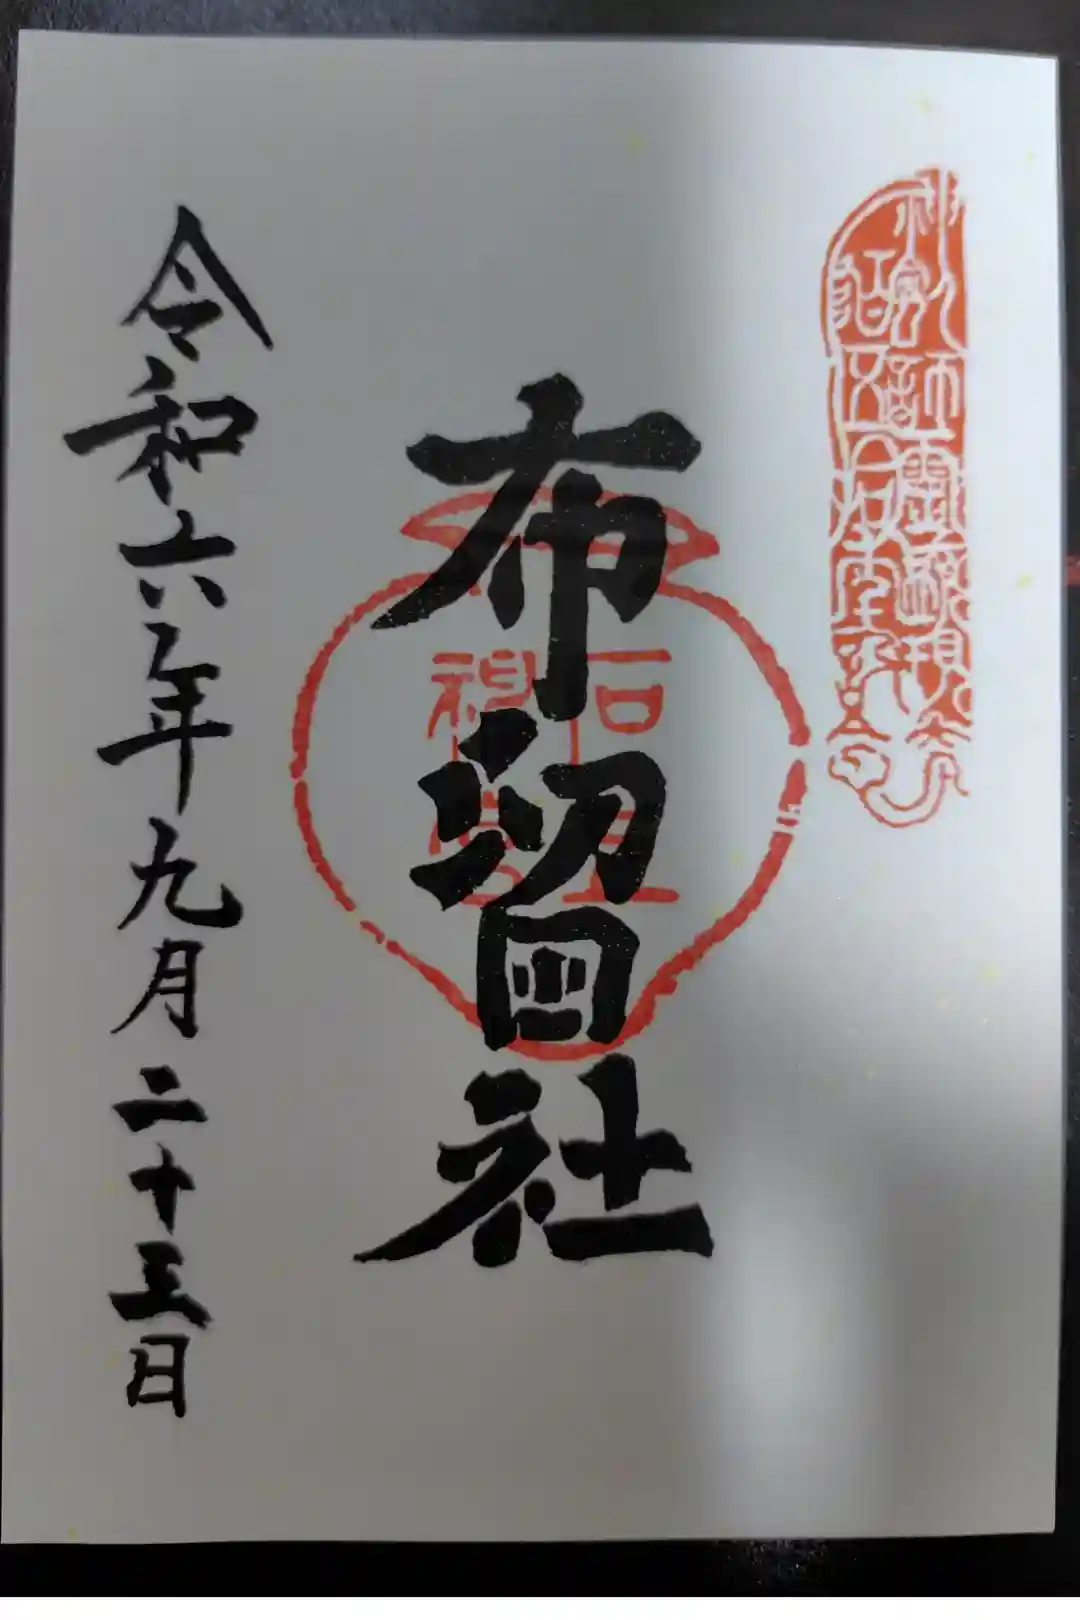 布留社
石上
神宮
令和六年九月二十三日